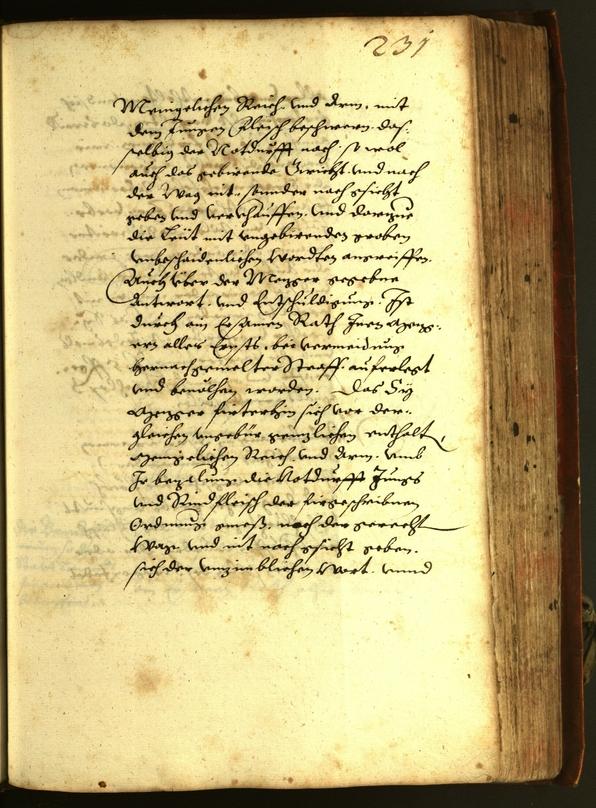 231
Menigelichen Reich und Arm, mit
dem Jungen Fleisch beschwern, das,
selbig der Notdurfft nach, so wol
auch das gebirende Gewicht, und nach
der Wag nit, sonder nach gsicht
geben und verkhauffen, und darzue
die Leüt mit ungebirenden groben
unbescheidenlichen Wordten anweiffen.
Auch über der Mezger gegebne
Antwort, und Entschuldigung, Ist
durch ain Ersamen Rath Inen Mezg,,
ern alles Ernsts, bei vermeidung
hernachgemelter Straff, auferlegt
und bevolhen worden. Das Sy
Mezger firterhin sich vor der,,
gleichen ungebür genzlichen enthalt,
Menigelichen Reich und Arm, umb
Ir bezalung die Notdurfft Jungs
und Rindfleisch der firgeschribnen
Ordnung gmeß, nach der gerecht
Wag, und nit nach gsicht geben.
sich der unzimblichen Wort, unnd